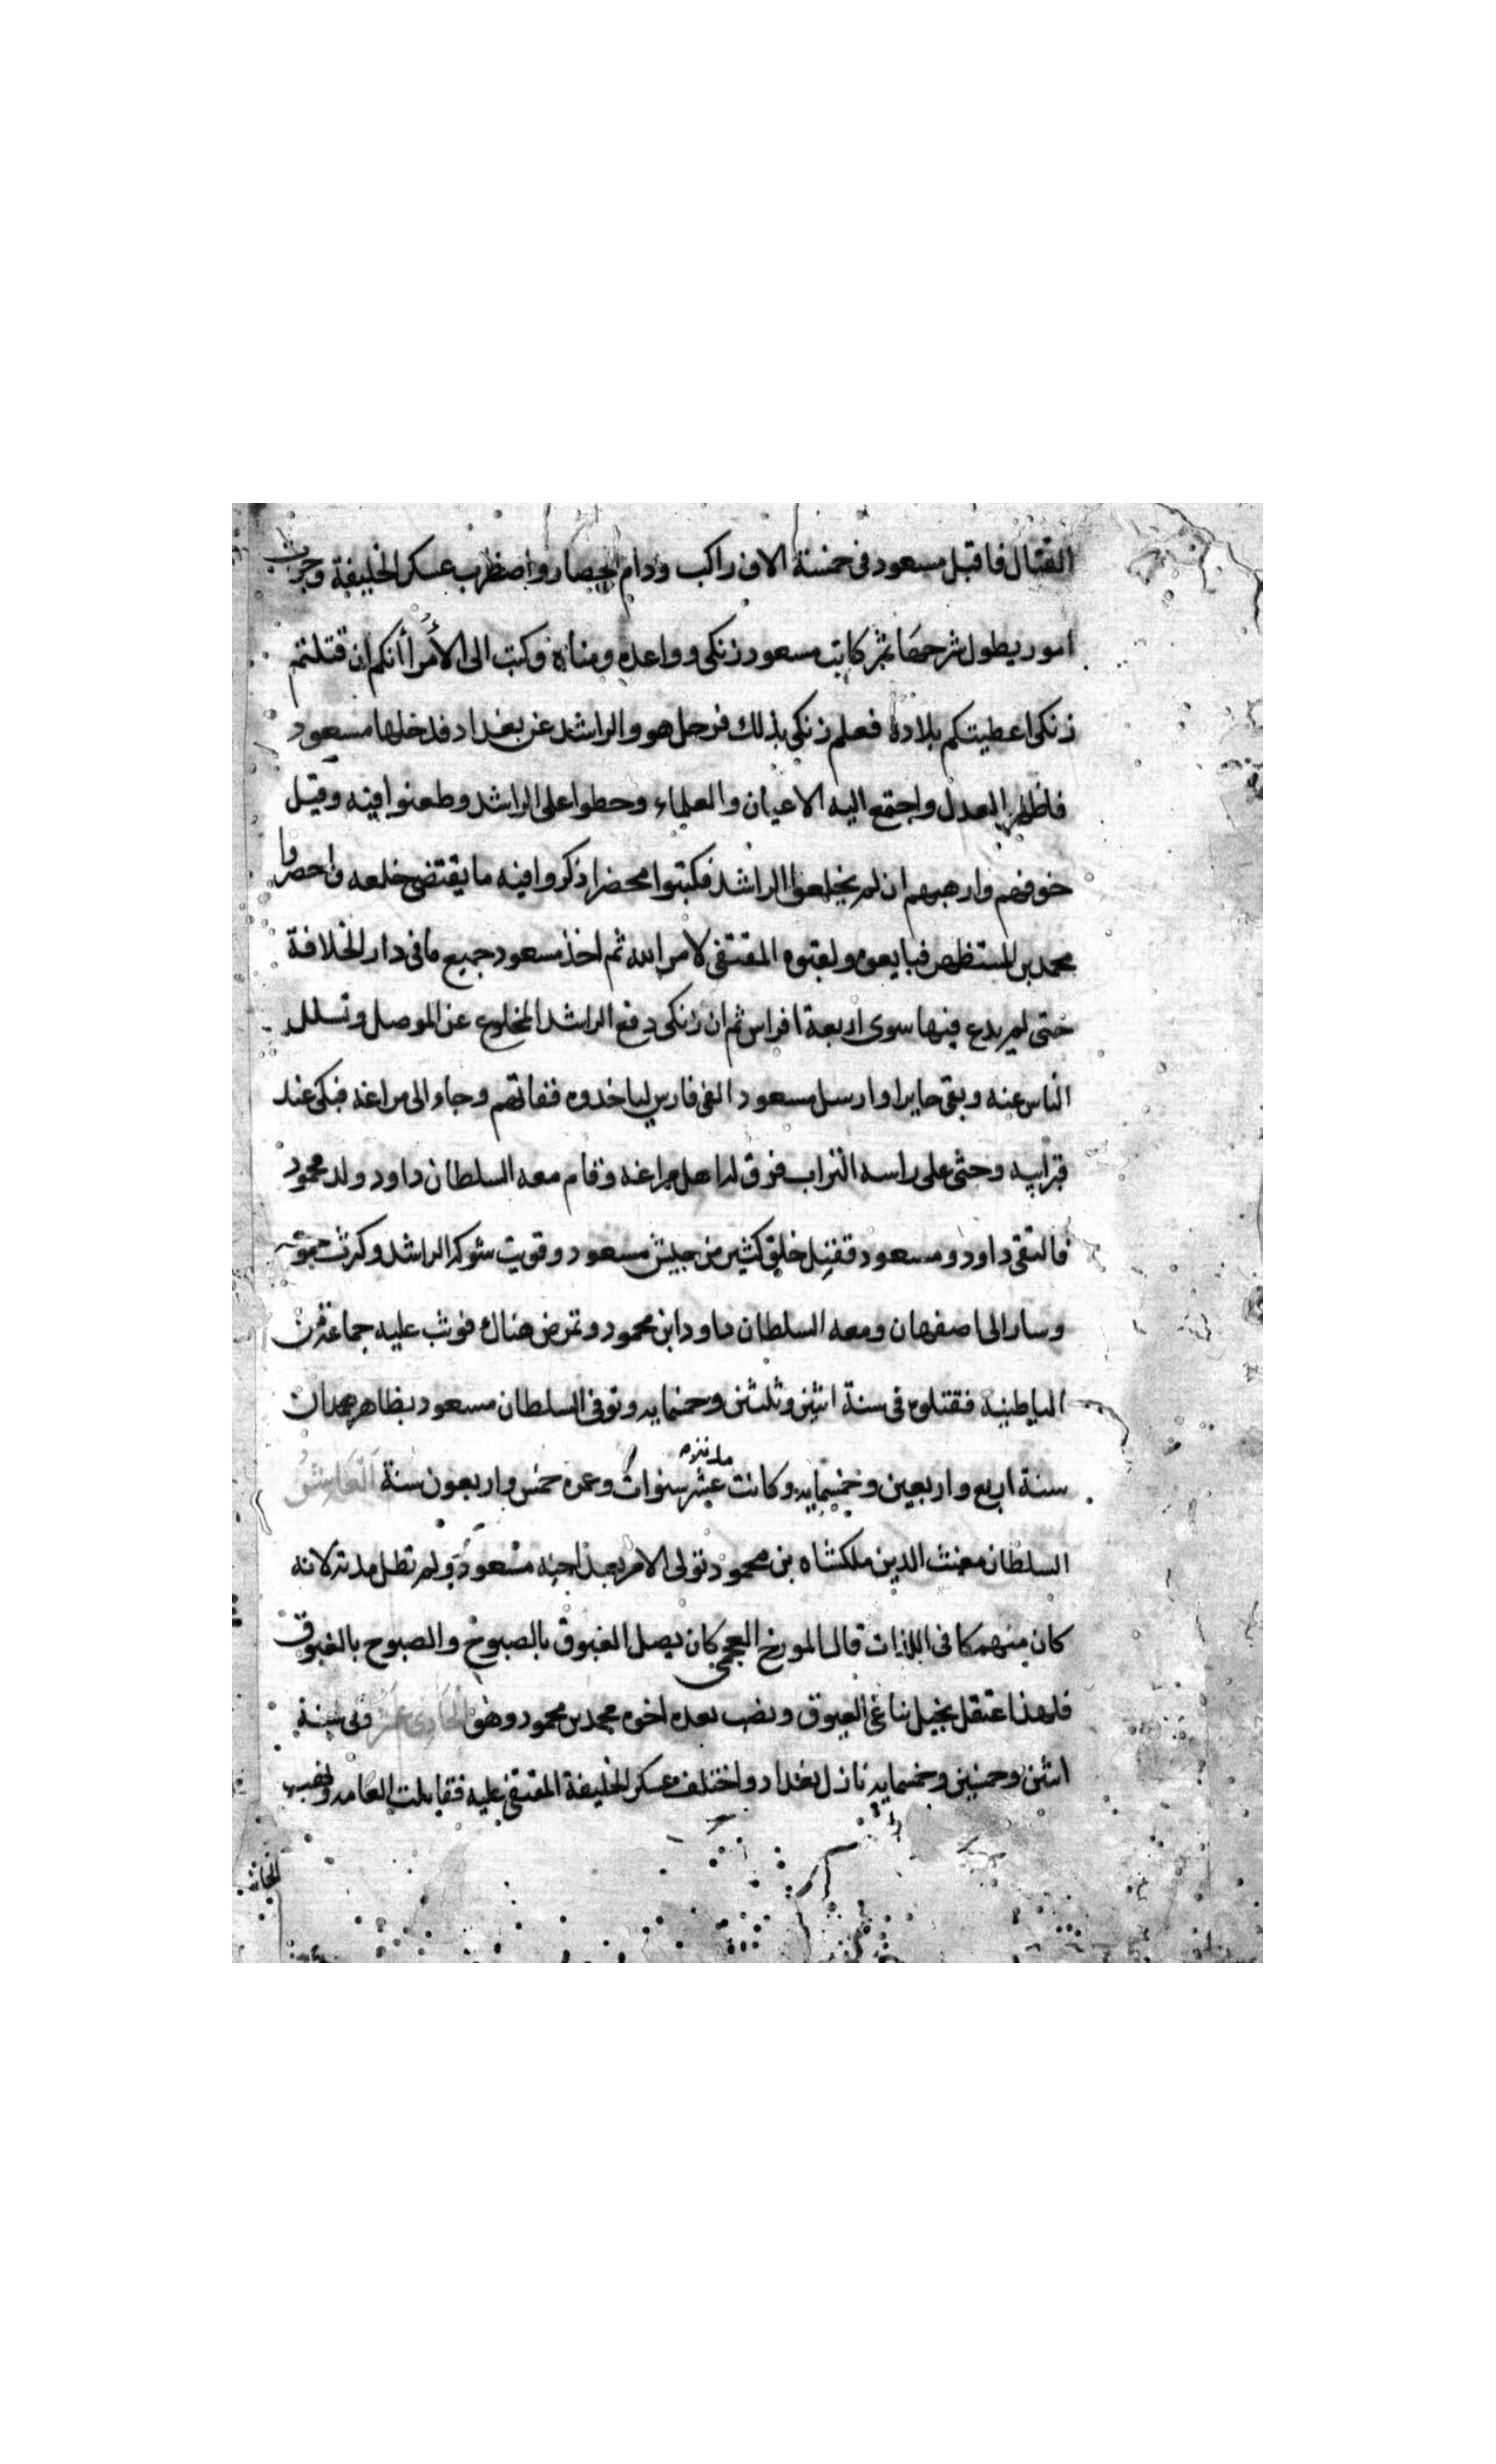 القتال فاقبل مسعود فى خمسة الاف راكب ودام الحصار واضطرب عسكر الخليفة وجرت
امور يطول شرحها ثم كاتب مسعود زنكى وواعده ومناه وكتب الى الأمرا أنكم ان قتلتم
زنكى اعطيتكم بلاده فعلم زنكى بذلك فرحل هو والراشد عن بغداد فدخلها مسعود
فاظهر العدل واجتمع اليه الاعيان والعلماء وحطوا على الراشد وطعنوا فيه وقيل
خوفهم وارهبهم ان لم يخلعوا الراشد فكتبوا محضرا ذكروا فيه ما يقتضى خلعه واحضروا
محمد بن المستظهر فبايعوه ولقبوه المقتفى لامر الله ثم اخذ مسعود جميع ما فى دار الخلافة
حتى لم يدع فيها سوى اربعة افراس ثم ان زنكى دفع الراشد المخلوع عن الموصل وتسلل
الناس عنه وبقى حايرا وارسل مسعود الفى فارس لياخدوه ففاتهم وجاء الى مراغه فبكى عند
قبر ابيه وحثى على راسه التراب فرق له اهل مراغه وقام معه السلطان داود ولد محمود
فالتقى داود ومسعود فقتل خلق كثير من جيش مسعود وقويت شوكة الراشد وكثرت جموعه
وسار الى اصفهان ومعه السلطان داود ابن محمود وتمرض هناك فوثب عليه جماعة من
الباطنية فقتلوه فى سنة اثنين وثلثين وخمسمايه وتوفى السلطان مسعود بظاهر همدان
سنة اربع واربعين وخمسمايه وكانت مدته عشر سنوات وعمره خمس واربعون سنة العاشر
السلطان مغيث الدين ملكشاه بن محمود تولى الامر بعد اخيه مسعود ولم تطل مدته لانه
كان منهمكا فى اللذات قال المورخ العجمى كان يصل الغبوق بالصبوح والصبوح بالغبوق
فلهذا اعتقل بخيل العيوق ونصب بعده اخوه محمد بن محمود وهو الحادى عشر وفى سنة
اثنين وخمسين وخمسمايه نازل بغداد واختلف عسكر الخليفة المقتفى عليه فقابلت العامه ونصب